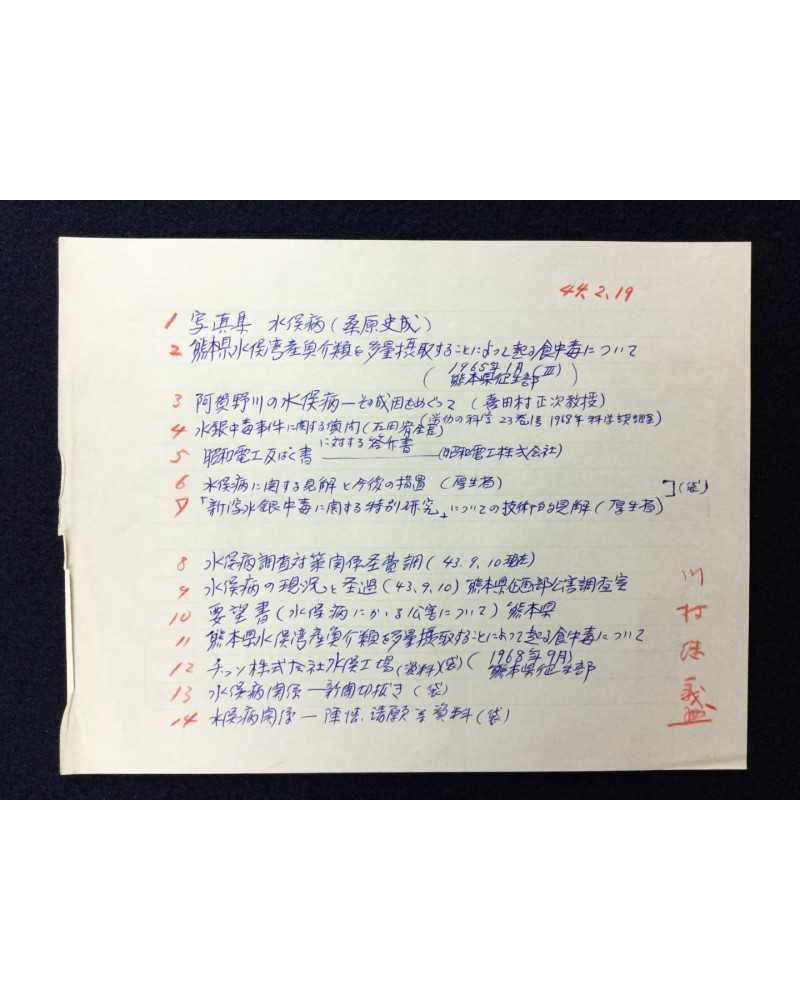 44.2.19
1 写真集 水俣病(桑原史成)
2 熊本県水俣湾産魚介類を多量摂取することによって起る食中毒について
(1965年1月(Ⅲ) 熊本県衛生部)
3 阿賀野川の水俣病―その成因をめぐって(喜田村正次教授)
(労働の科学 23巻1号 1968年
4 水銀中毒事件に関する質問
に対する答弁書
5 昭和電工反ばく書 ―――(昭和電工株式会社)
6 水俣病に関する見解と今後の措置(厚生省)
7 「新潟水銀中毒に関する特別研究」についての技術的見解(厚生省) ](袋)
8 水俣病調査対策関係経費調(43.9.10現在)
9 水俣病の現況と経過(43.9.10)熊本県企画部公害調査室
10 要望書(水俣病にかゝる公害について)熊本県
11 熊本県水俣湾産魚介類を多量摂取することによって起る食中毒について
(1968年9月) 熊本県衛生部
12 チッソ株式会社水俣工場(資料)(袋)
13 水俣病関係―新聞切抜き(袋)
14 水俣病関係―陳情、請願等資料(袋)
川村
義